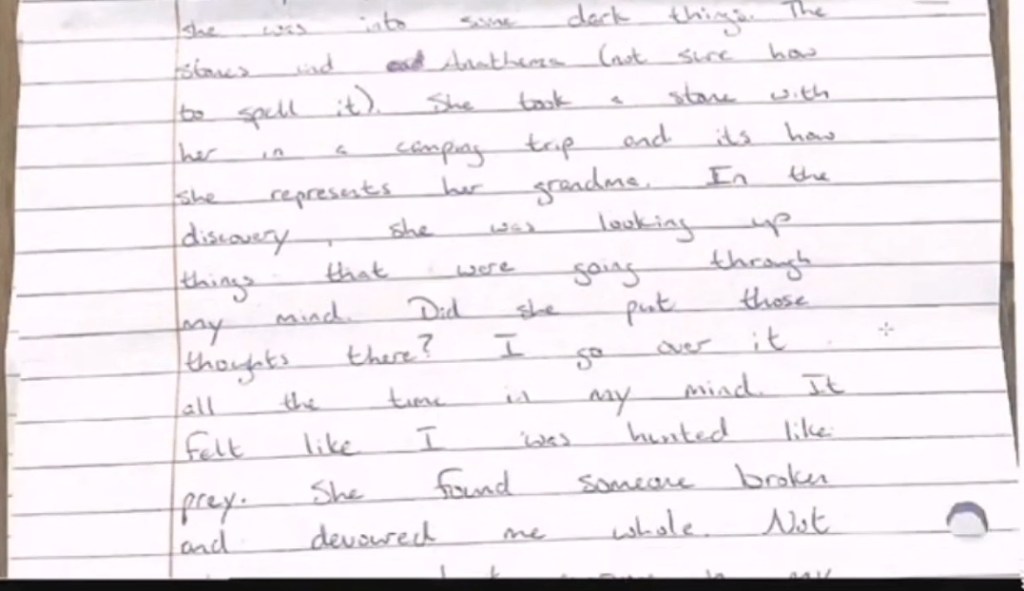 she was into some dark things. The
stones and (not sure how
to spell it). She took a stone with
her in a camping trip and its how
she represents her grandma. In the
discovery, she was looking up
things that were going through
my mind. Did she put those
thoughts there? I go over it
all the time in my mind. It
felt like I was hunted like
prey. She found someone broken
and devoured me whole. Not